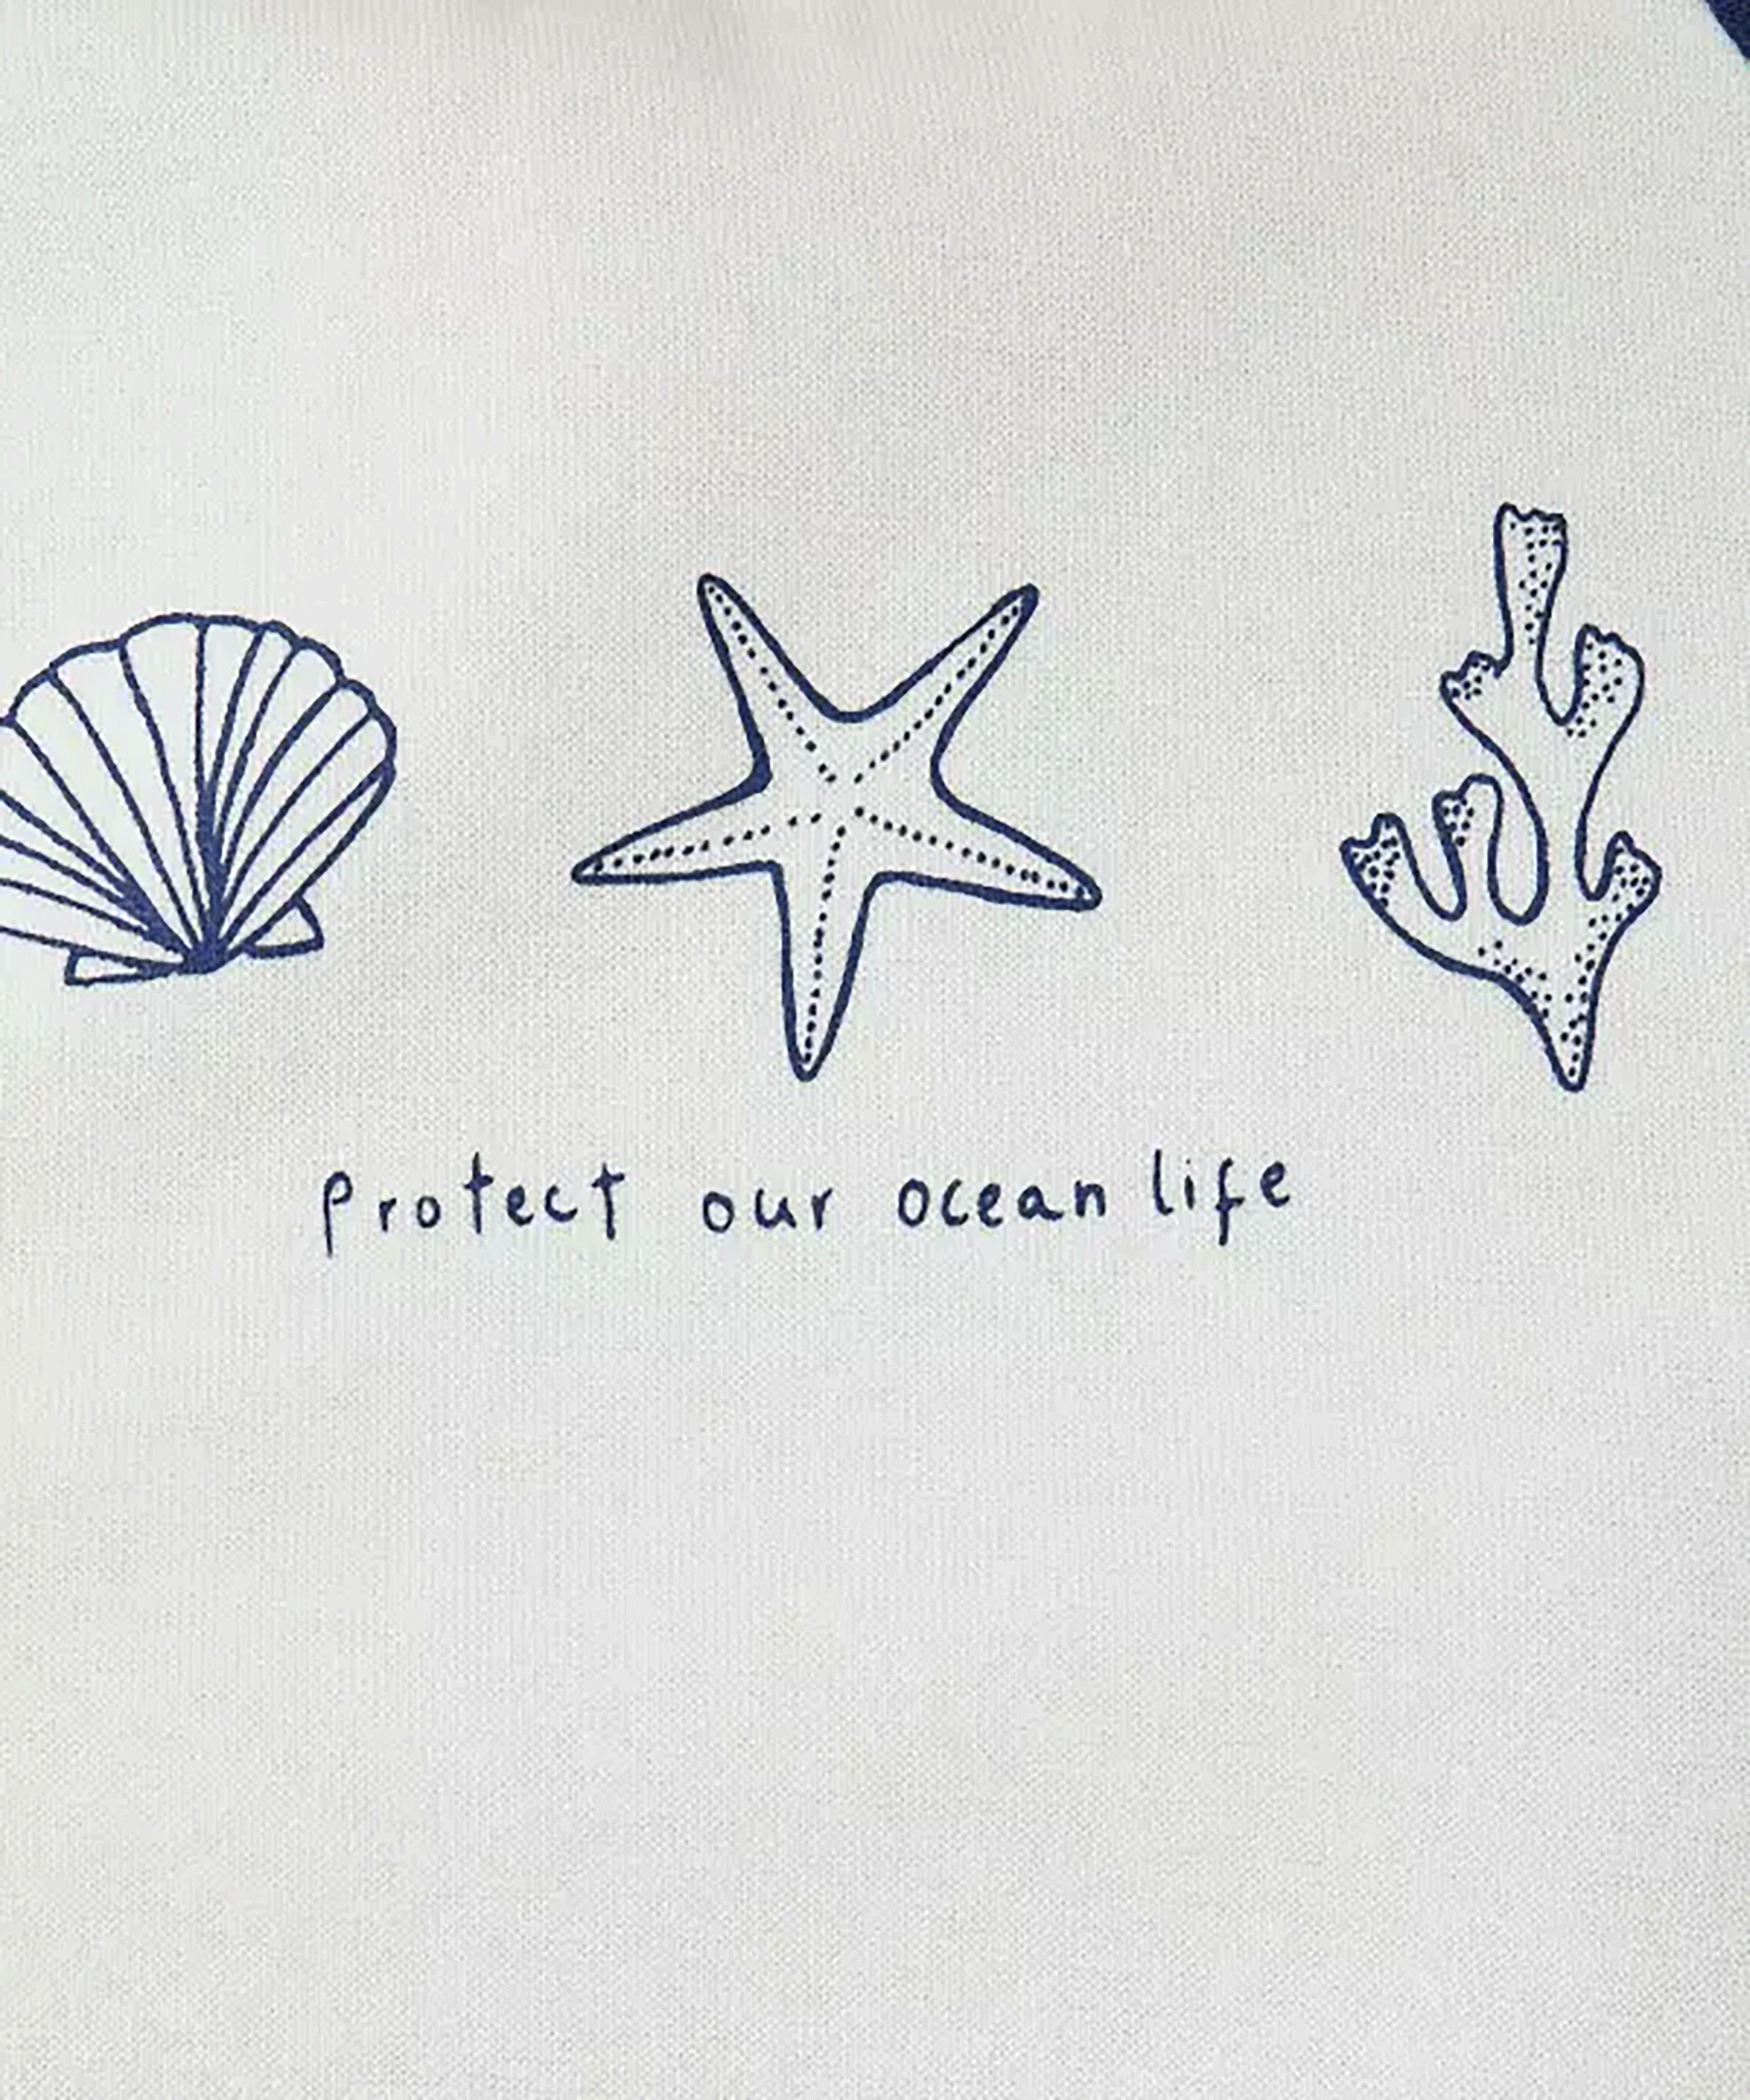 protect our ocean life